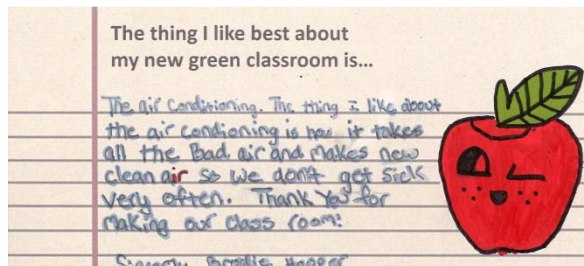 The thing I like best about
my new green classroom is...
The air Conditioning. The thing I like about
the air condioning is how it takes
all the Bad air and Makes new
clean air so we don't get sick
very often. Thank You for
Making our class room!